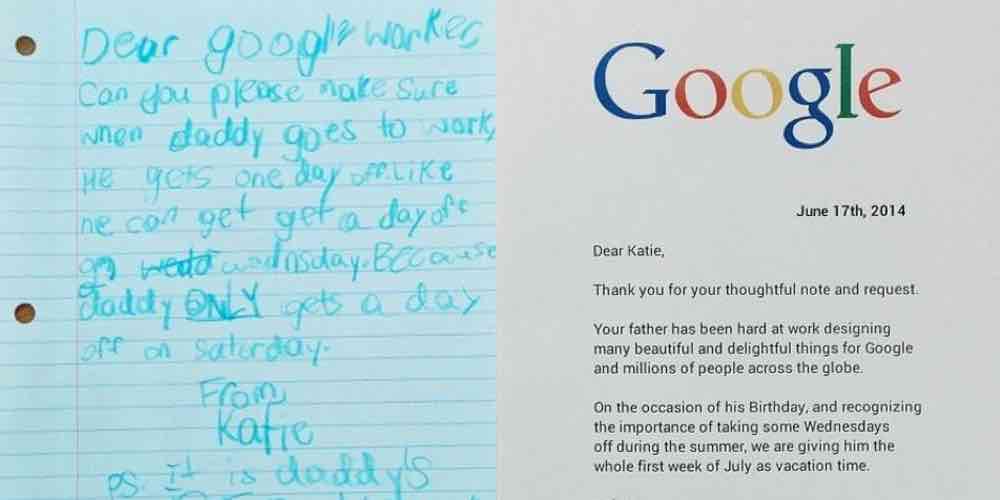 Dear google worker
Can you please make sure
when daddy goes to work,
He gets one day off. Like
he can get get a day off
on wednsday. BECause
daddy ONLY gets a day
off on saturday.
From,
Katie
ps. It is daddy's
Google
June 17th, 2014
Dear Katie,
Thank you for your thoughtful note and request.
Your father has been hard at work designing
many beautiful and delightful things for Google
and millions of people across the globe.
On the occasion of his Birthday, and recognizing
the importance of taking some Wednesdays
off during the summer, we are giving him the
whole first week of July as vacation time.